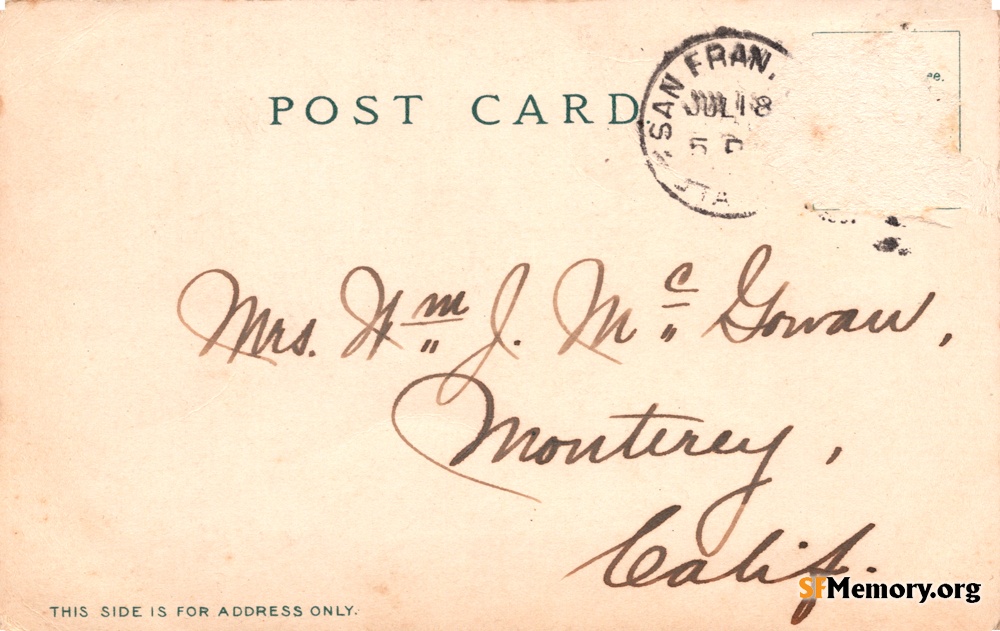 POST CARD
SAN FRAN.
JUL 18
5 P
STA
Mrs. Wm J. Mc Gowan,
Monterey,
Calif.
THIS SIDE IS FOR ADDRESS ONLY.
SFMemory.org